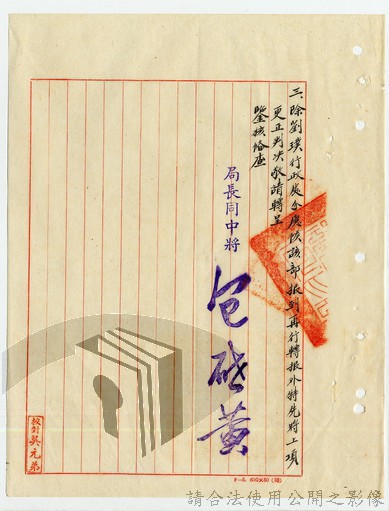 三、除劉璞行政處分應俟該部報到再行轉报外特先將上項
更正判决敬請轉呈
鑒核俻查
局長同中將
包啟黃
校對吳元弟
請合法使用公開之影像